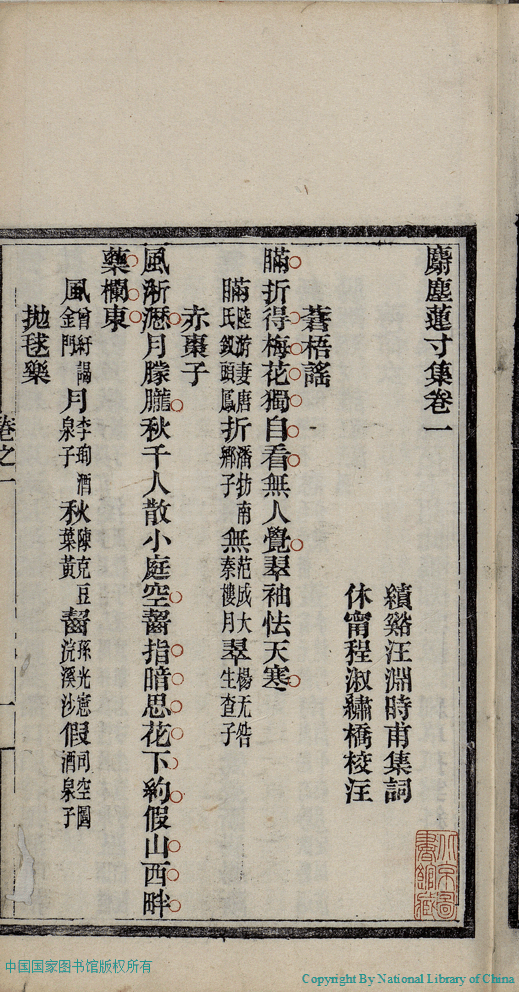 麝塵蓮寸集卷一
績谿汪淵時甫集詞
休甯程淑繡橋校注
蒼梧謠
瞞折得梅花獨自看無人覺翠袖怯天寒
瞞陸游妻唐氏釵頭鳳折潘牥南鄉子無范成大秦樓月翠楊无咎生查子
赤棗子
風淅瀝月朦朧秋千人散小庭空齧指暗思花下約假山西畔
藥欄東
風曾紆謁金門月李珣酒泉子秋陳克豆葉黃齧孫光憲浣溪沙假司空圖酒泉子
拋毬樂
卷之一
一
北京圖書館藏
中国国家图书馆版权所有
Copyright By National Library of China